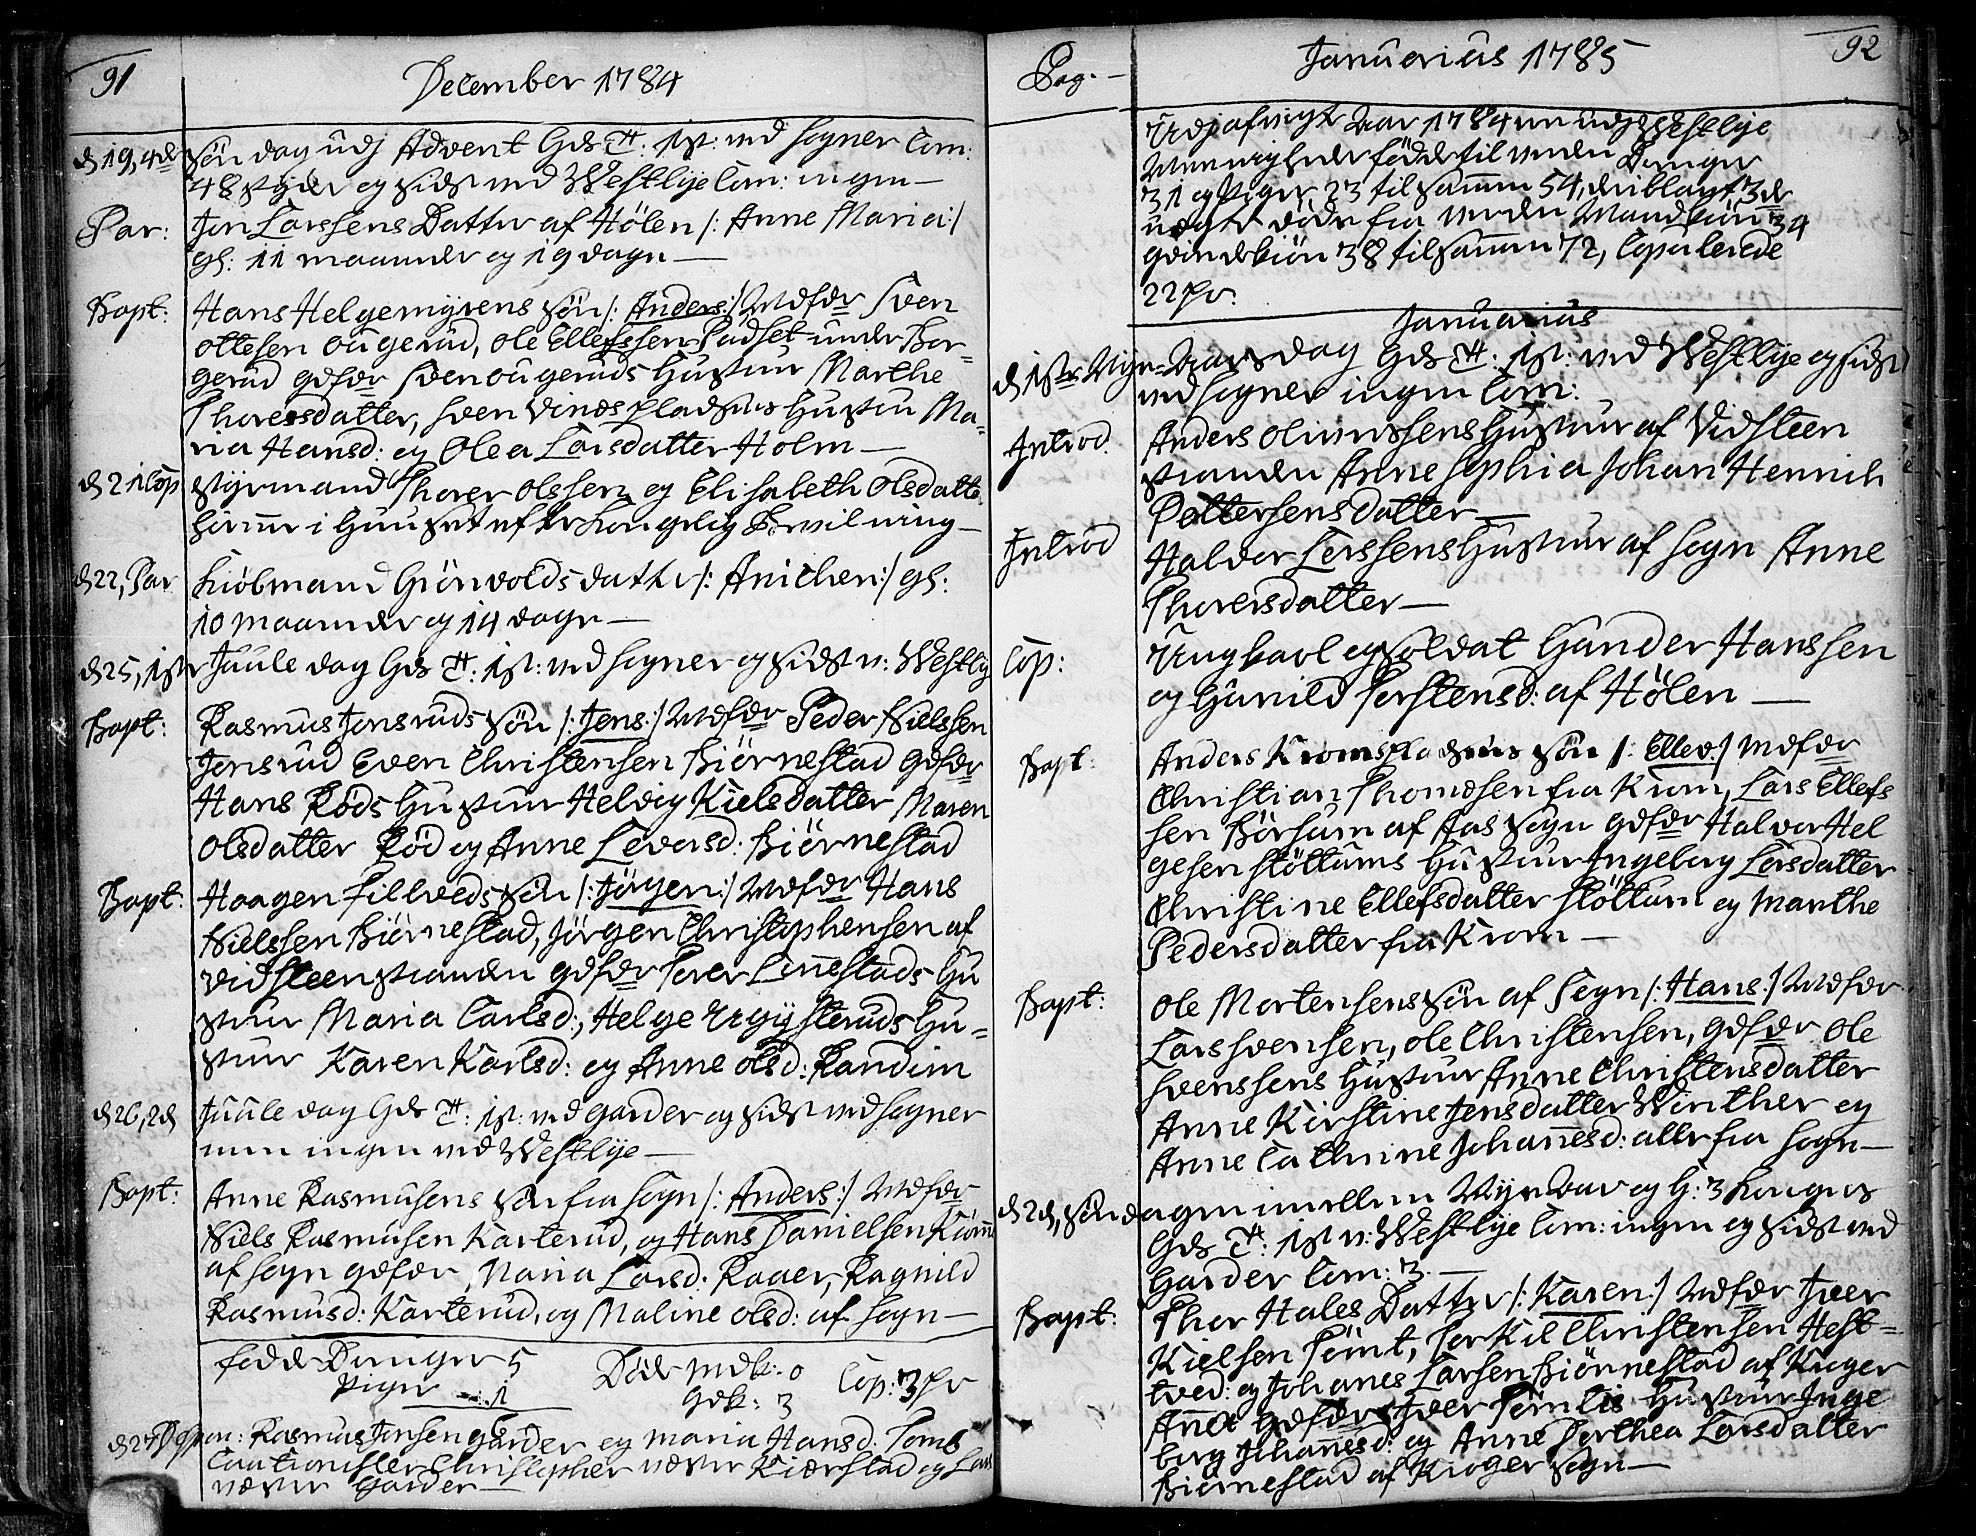 91
December 1784
d 19, 4de Søndag udj Advent Gds T: ist: ved Sogner Com:
48 stÿder og sidst ved Westbÿe Com: ingen —
Par: Jon Larssens Datter af Hölen /: Anne Maria :/
gl: 11 maaneder og 19 dage —
Bapt: Hans Helgemÿrens Søn /: Anders :/ Mdfdr Sven
Ottesen Ougerud, Ole Ellefssen Padset under Bor=
gerud Qdfdr Sven Ougeruds Hustrue Marthe
Thoresdatter, Sven Vindspladsens Hustru Ma=
ria Hansd: og Olea Larsdatter Holm —
d 21 Cop Stÿrmand Thorer Olssen og Elisabeth Olsdatter
hiemme i Huuset efter Kongelig Bevilning —
d 22, Par Kiøbmand Grönvolds datter /: Anichen :/ gl:
10 maaneder og 14 dage —
d 25, 1ste Juule dag Gds T: ist: ved Sogner og sidst v: Westbÿ
Bapt: Rasmus Jonsruds Søn /: Jens :/ Mdfdr Peder Nielssen
Jonsrud Even Christensen Biörnestad Qdfdr
Hans Röds Hustrue Helvig Kielsdatter Maren
Olsdatter Röd og Anne Levorsd: Biörnestad
Bapt: Haagen Filtveds Søn /: Jörgen :/ Mdfdr Hans
Nielssen Biörnestad, Jörgen Christophersen af
Vidsteenstranden Qdfdr Torer Linnestads Hu
strue Maria Carlsd:, Helge Hu=
strue Karen Karlsd: og Anne Olsd: Randim
d 26, 2d Juule dag Gds T: ist: ved Garder og sidst ved Sogner
men ingen ved Westbÿe —
Bapt: Anne Rasmusens Søn fra Sogn /: Anders :/ Mdfdr
Niels Rasmusen Karterud, og Hans Danielsen
af Sogn Qdfdr Maria Larsd: Raaer, Ragnild
Rasmusd: Karterud, og Maline Olsd: af Sogn —
fødde Drenger 5 Døde mdk: 0 Cop: 3 Pr
Piger 1 Qdk: 3
Rasmus Jensen Garder og Maria Hansd: Tomb
Cautionister Christopher Kierstad og Lars
Garder —
Pag. —
Januarius 1785
92
Udj afvigte Aar 1784 er udj Westbÿe
Menigheder fødde til Verden Drenger
31 og Piger 23 tilsamen 54, deriblant 3de
uægte døde fra Verden Mandkiön 34
Qvindekiön 38 tilsamen 72, Copulerede
22 Pr.
Januarius
d 1ste Nÿe-Aars dag Gds T: ist: ved Westbÿe og sidst
ved Sogner ingen Com:
Introd. Anders Olivessens Hustrue af Vidsteen
stranden Anne Sophia Johan Henrich
Pettersens datter —
Introd Halvor Larssens Hustrue af Sogn Anne
Thoresdatter —
Cop: Ungkarl og Soldat Gunder Hanssen
og Gunild Torstensd: af Hölen —
Bapt: Anders Kromspladsens Søn /: Ellev :/ Mdfdr
Christian Thomesen fra Krom, Lars Ellefs
sen Börsum af Aas Sogn Qdfdr Halvor Hel
gesen Stöttums Hustrue Ingeborg Larsdatter
Christine Ellefsdatter Stöttum og Marthe
Pedersdatter fra Krom —
Bapt: Ole Mortensens Søn af Sogn /: Hans :/ Mdfdr
Lars Svensen, Ole Christensen, Qdfdr Ole
Svenssens Hustrue Anne Christensdatter
Anne Kirstine Jensdatter Winther og
Anne Cathrine Johanesd: alle fra Sogn —
d 2d, Søndagen imellem Nÿe Aar og H: 3 Konger
Gds T: ist v: Westbÿe Com: ingen og sidst ved
Garder Com: 3. —
Bapt: Thor Hales Datter /: Karen :/ Mdfdr Iver
Kielsen Tömt, Torkil Christensen Hest=
tved: og Johanes Larsen Biörnestad af Kroger
Anex Qdfdr Iver Tömtes Hustrue Inge
borg Johanesd: og Anne Dorthea Larsdatter
Biörnestad af Kroger Sogn —